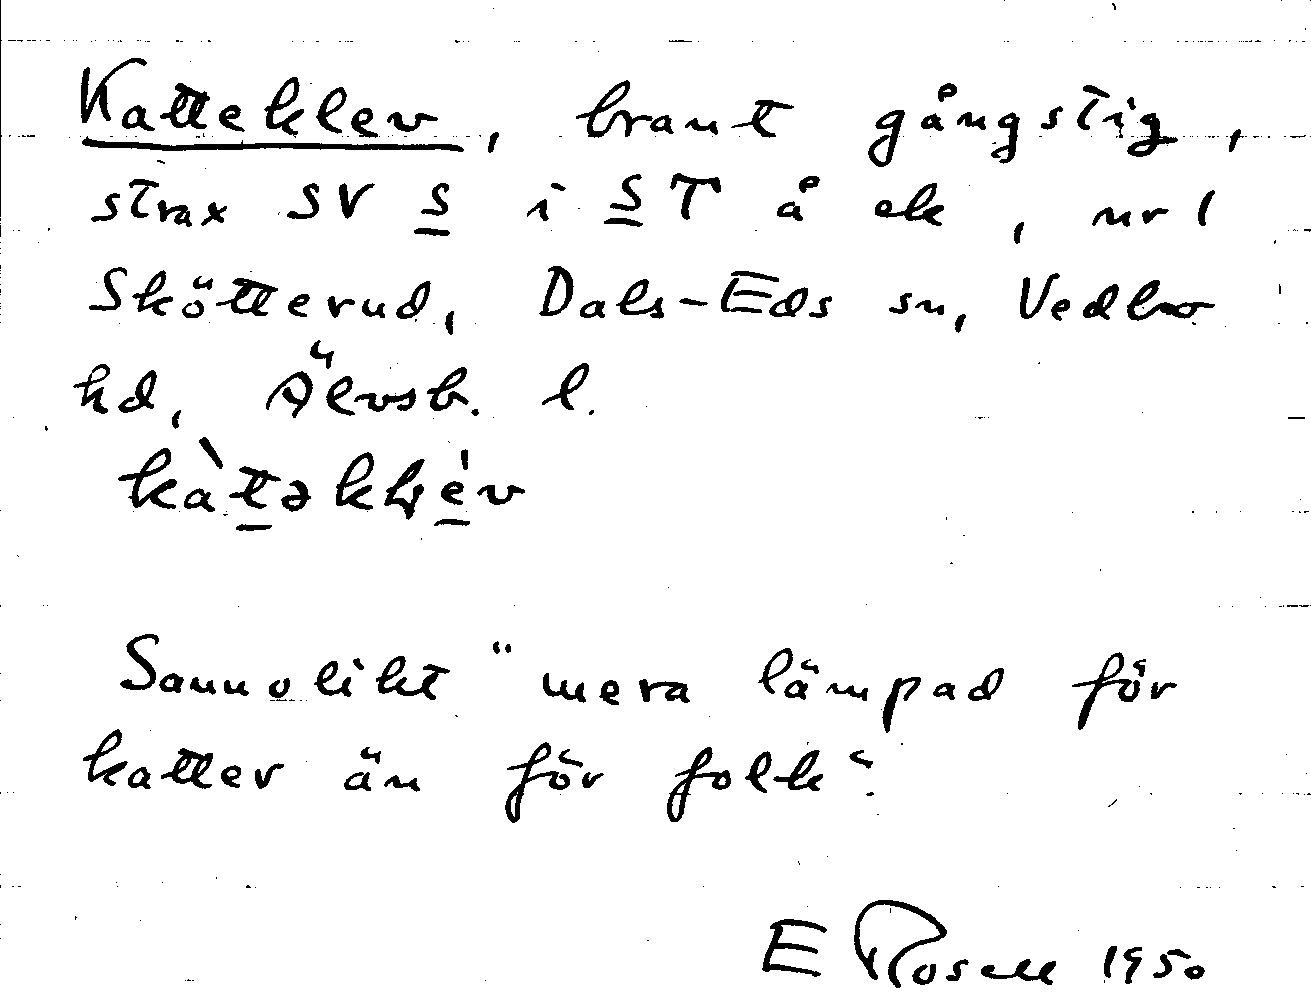 Katteklev, brant gångstig,
strax SV s i ST å ek, nr 1
Skötterud, Dals-Eds sn, Vedbo
hd, Älvsb. l.
kàtəklév
Sannolikt "mera lämpad för
katter än för folk".
E Rosell 1950